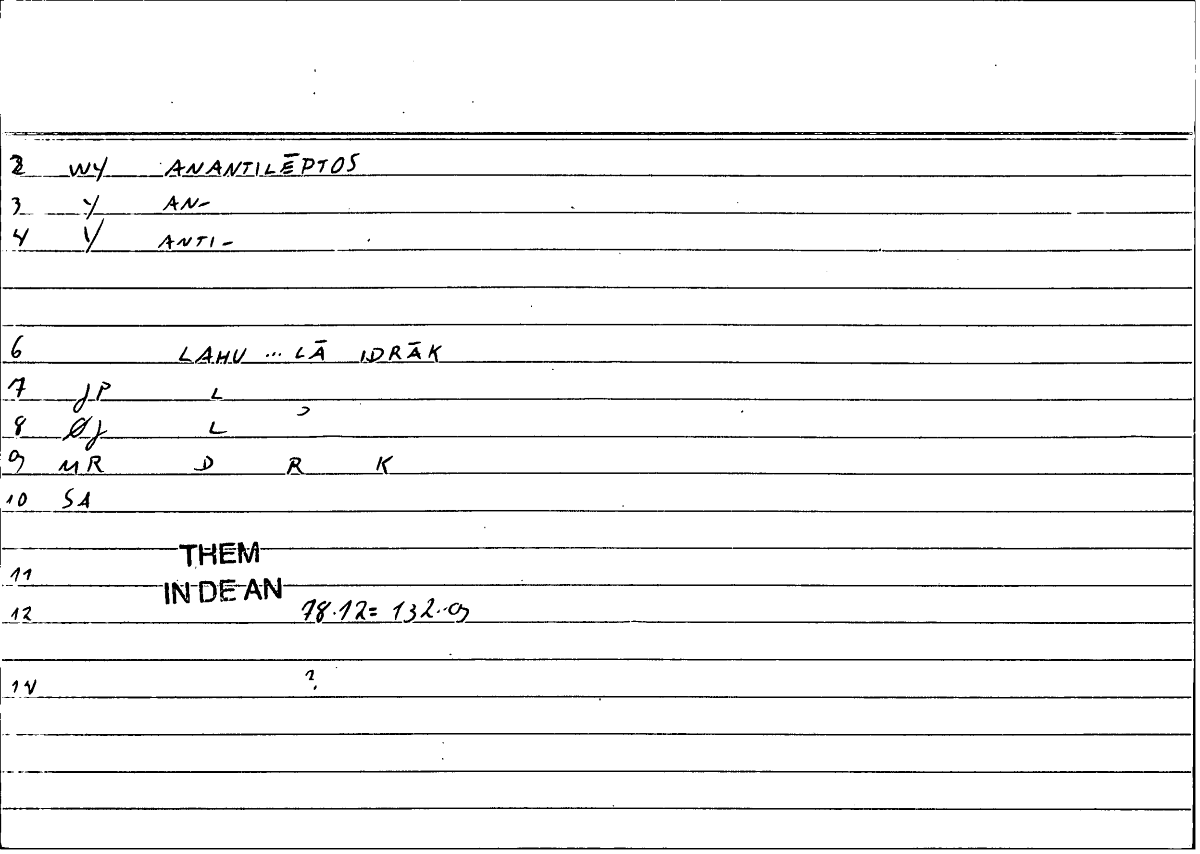 2 WY ANANTILĒPTOS
3 Y AN-
4 Y ANTI-
6 LAHU ... LĀ IDRĀK
7 JP L
8 ØJ L ʾ
9 MR D R K
10 SA
THEM
11
IN DE AN
12 78.12= 132.9
14 ?